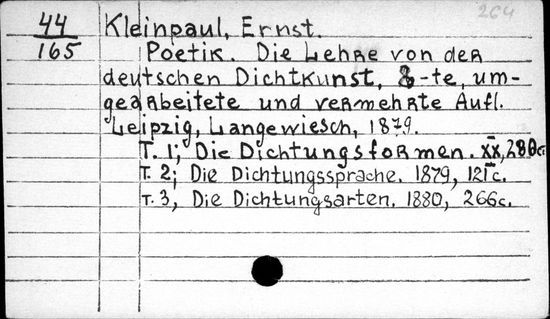 264
44
165
Kleinpaul, Ernst.
Poetik. Die Lehre von der
deutschen Dichtkunst, 8-te, um-
gearbeitete und vermehrte Aufl.
Leipzig, Langewiesch, 1879.
T. 1; Die Dichtungsformen. XX, 280c.
T. 2; Die Dichtungssprache. 1879, 121c.
T. 3, Die Dichtungsarten. 1880, 266c.